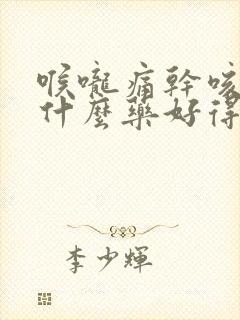 喉嚨痛幹咳
什麼藥好得
李少輝